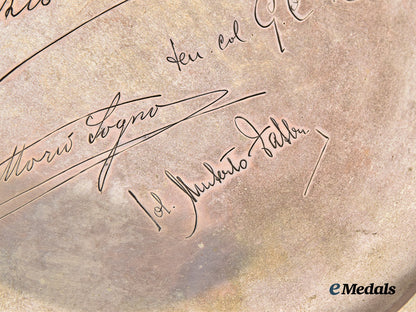 ten. col. G. C
Vittorio Sogno
Col. Umberto Fabbri
eMedals